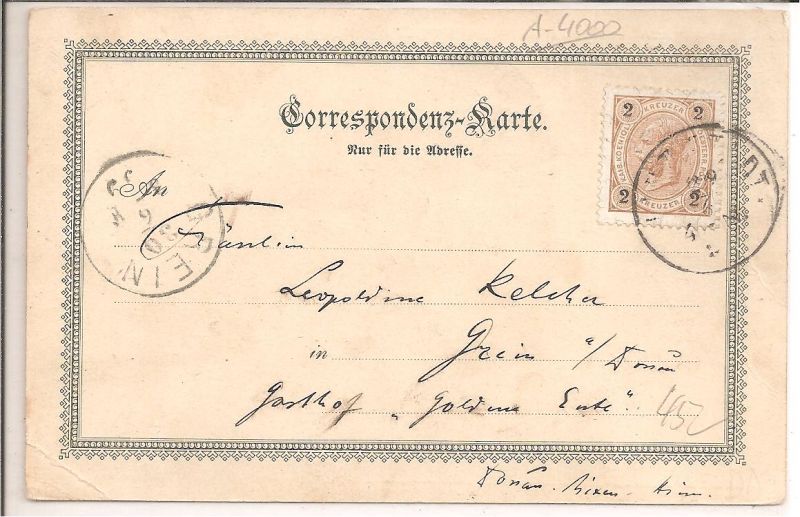 A-4000
Correspondenz-Karte.
Nur für die Adresse.
2 KREUZER 2
2 KREUZER 2
An
Fräulein
GREIN
Leopoldine Kelcher
in Grein a/Donau
Gasthof „Goldene Ente".
452
Donau